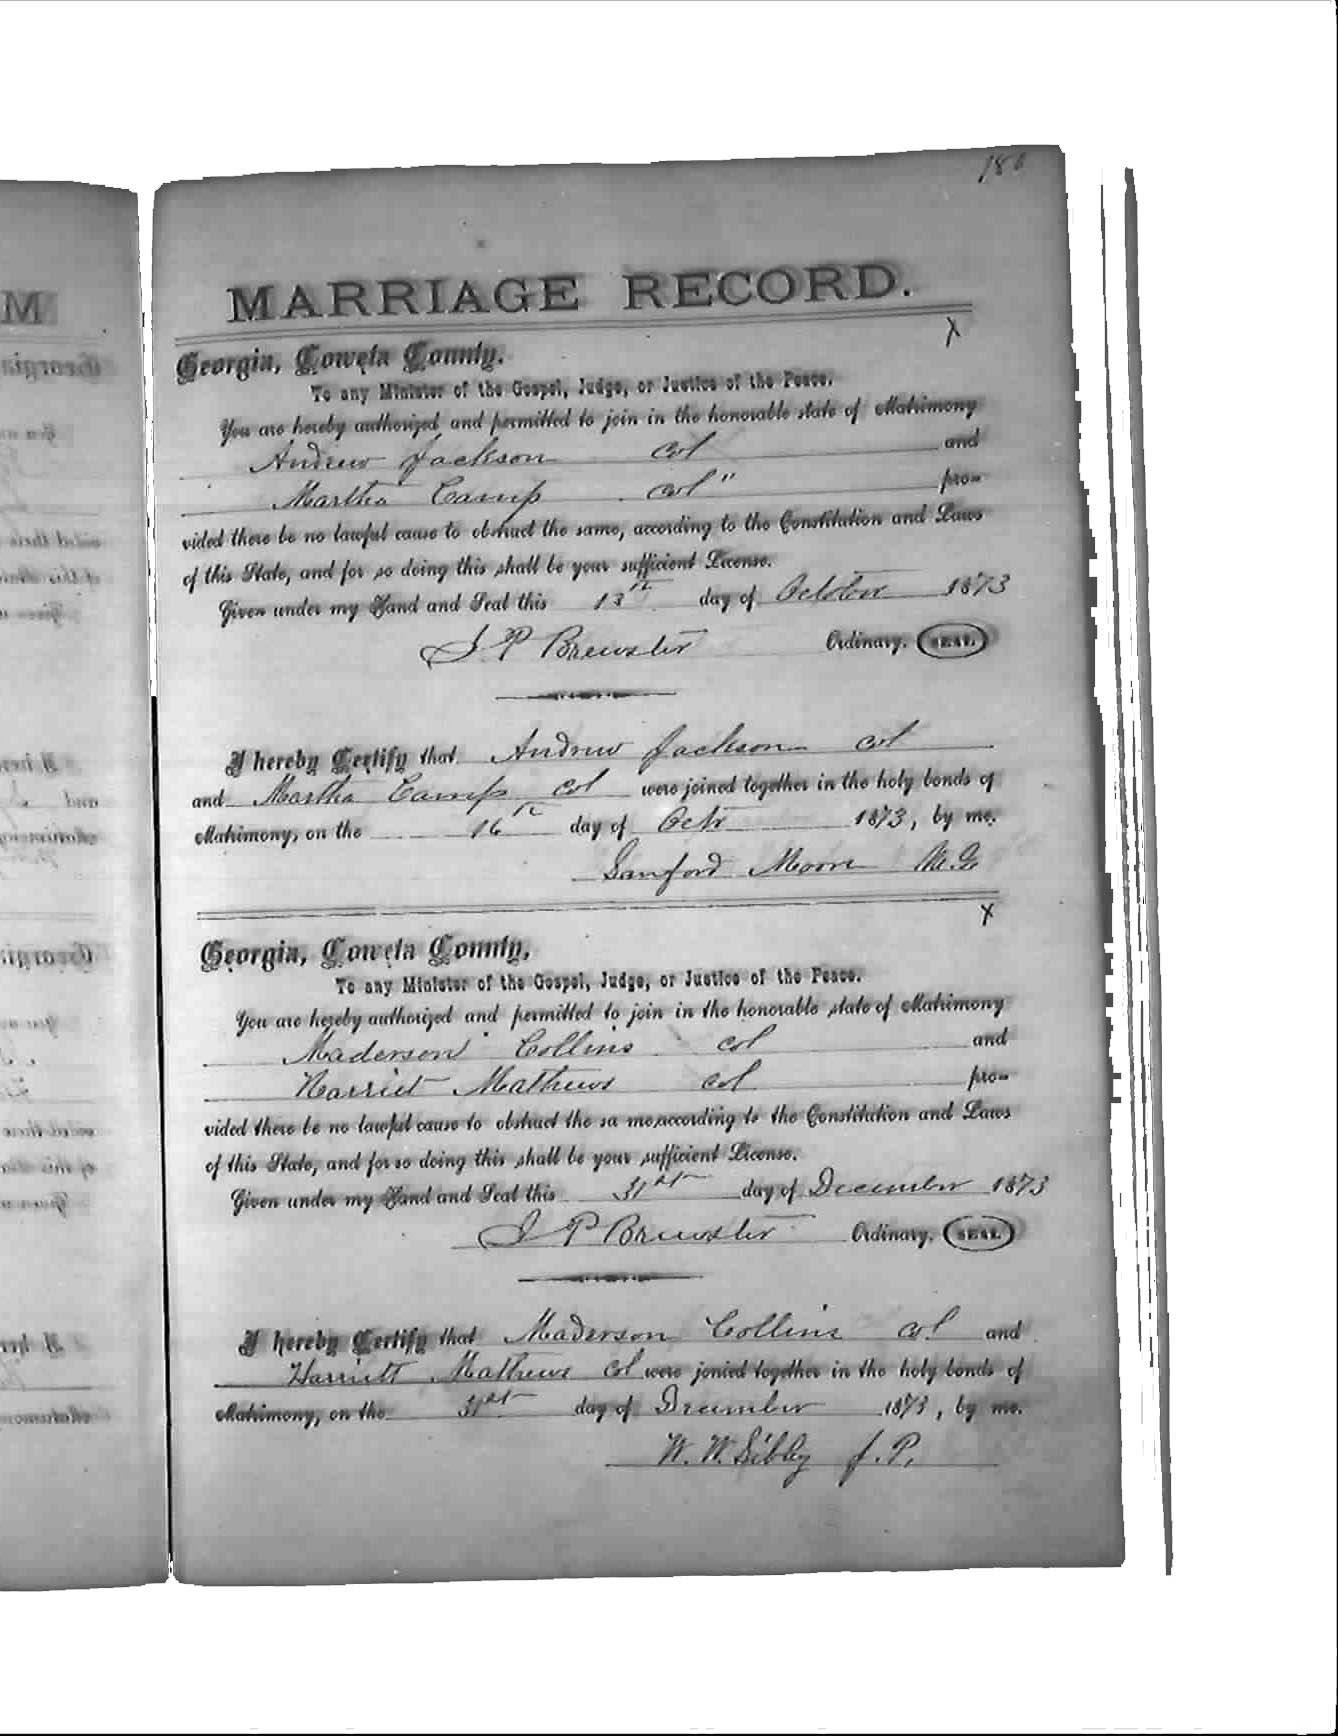 180
MARRIAGE RECORD.
X
Georgia, Coweta County.
To any Minister of the Gospel, Judge, or Justice of the Peace.
You are hereby authorized and permitted to join in the honorable state of Matrimony
Andrew Jackson col and
Martha Camp col" pro-
vided there be no lawful cause to obstruct the same, according to the Constitution and Laws
of this State, and for so doing this shall be your sufficient License.
Given under my Hand and Seal this 13th day of October 1873
J P Brewster Ordinary. SEAL.
I hereby Certify that Andrew Jackson col
and Martha Camp col were joined together in the holy bonds of
Matrimony, on the 16th day of Octr 1873, by me.
Sanford Moore M.G.
X
Georgia, Coweta County,
To any Minister of the Gospel, Judge, or Justice of the Peace.
You are hereby authorized and permitted to join in the honorable state of Matrimony
Maderson Collins col and
Harriet Mathews col pro-
vided there be no lawful cause to obstruct the sa me, according to the Constitution and Laws
of this State, and for so doing this shall be your sufficient License.
Given under my Hand and Seal this 31st day of December 1873
J P Brewster Ordinary. SEAL.
I hereby Certify that Maderson Collins col and
Harriett Mathews col were jonied together in the holy bonds of
Matrimony, on the 31st day of December 1873, by me.
W. W. Sibley J. P.